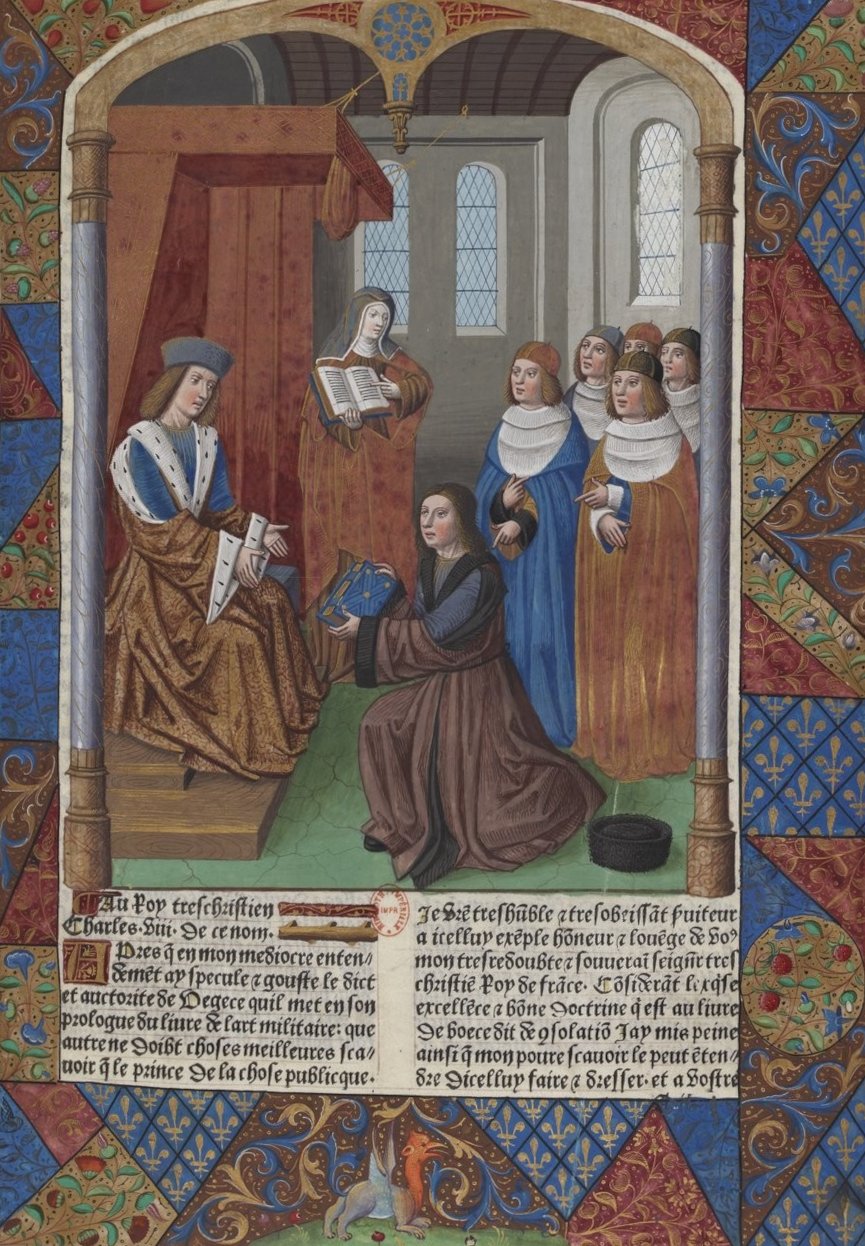 Au Roy treschristien
Charles. viii. De ce nom.
Apres q̃ en mon mediocre enten⸗
dement ay specule ⁊ gouste le dict
et auctorite de Vegece quil met en son
prologue du liure de lart militaire: que
autre ne doibt choses meilleures sca⸗
uoir q̃ le prince De la chose publicque.
Je vr̃e treshũble ⁊ tresobeissãt ſuiteur
a icelluy exẽple hõneur ⁊ louẽge de voꝰ
mon tresredoubte ⁊ souuerai seignr̃ tres
christiẽ Roy de frãce. Cõsiderãt lexq̃se
excellẽce ⁊ bõne Doctrine q̃ est au liure
De boece dit de ꝯsolatiõ Jay mis peine
ainsi q̃ mon poure scauoir le peut ẽten⸗
dre Dicelluy faire ⁊ dresser. et a vostre
IMPR